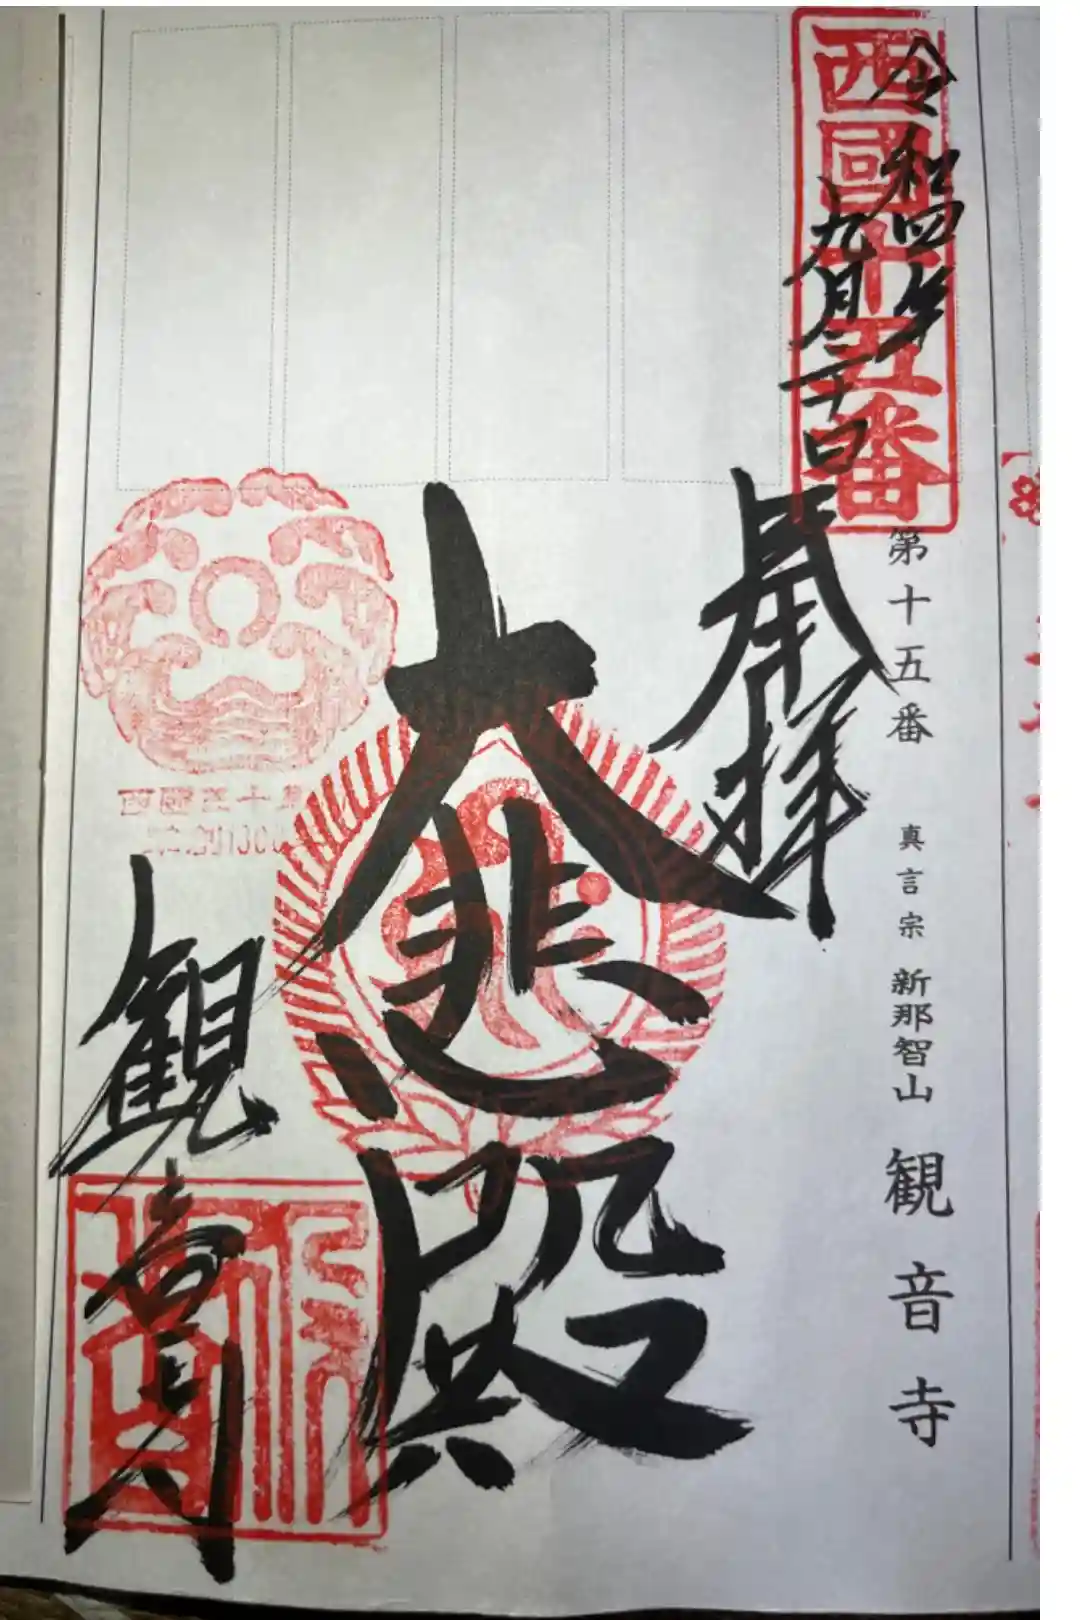 第十五番 真言宗 新那智山 観音寺
西國十五番
令和四年
九月二十日
奉拝
大悲殿
西國三十
観音